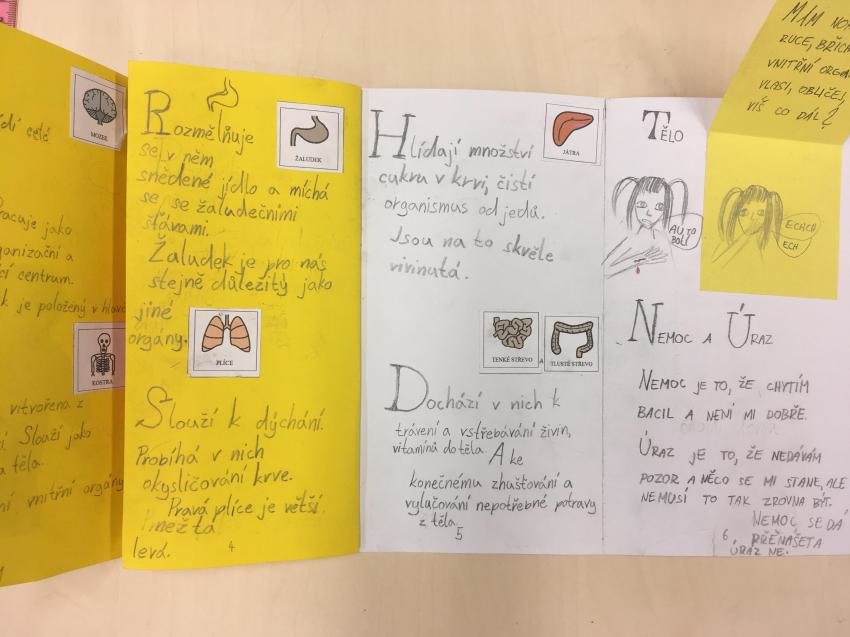 MOZEK
racuje jako
centrum.
k je položený v hlavě
KOSTRA
vitvořena z
Slouží jako
a těla.
vnitřní orgány
Rozmělňuje
se v něm
snědené jídlo a míchá
se se žaludečními
šťávami.
ŽALUDEK
Žaludek je pro nás
stejně důležitý jako
jiné
orgány.
PLÍCE
Slouží k dýchání.
Probíhá v nich
okysličování krve.
Pravá plíce je větší
než ta
levá.
4
Hlídají množství
cukru v krvi, čistí
organismus od jedů.
Jsou na to skvěle
vivinutá.
JÁTRA
TENKÉ STŘEVO A TLUSTÉ STŘEVO
Dochází v nich k
trávení a vstřebávání živin,
vitamínů do těla. A ke
konečnému zhušťování a
vylučování nepotřebné potravy
z těla.
5
TĚLO
AU, TO
BOLÍ
MÁM
RUCE, BŘICH
VNITŘNÍ ORGA
VLASI, OBLIČEJ,
VÍŠ CO DÁL?
ECHCH
ECH
NEMOC A ÚRAZ
NEMOC JE TO, ŽE CHYTÍM
BACIL A NENÍ MI DOBŘE.
ÚRAZ JE TO, ŽE NEDÁVÁM
POZOR A NĚCO SE MI STANE, ALE
NEMUSÍ TO TAK ZROVNA BÝT.
NEMOC SE DÁ
PŘENÁŠET A
ÚRAZ NE.
6